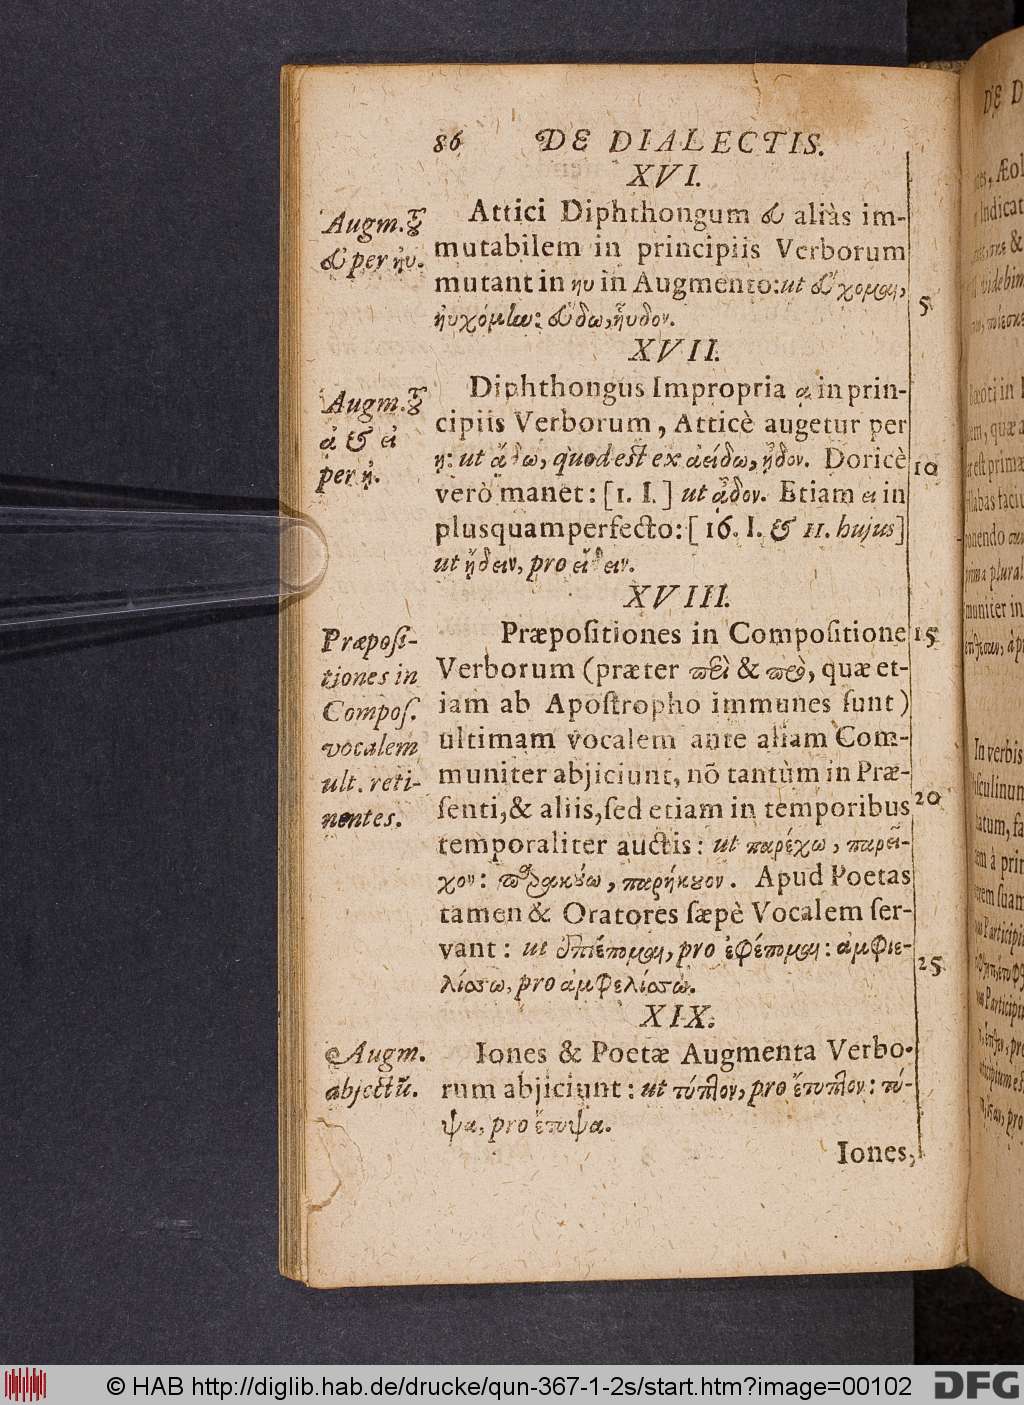 86 DE DIALECTIS.
XVI.
Augm. τȣ
ευ per ηυ.
Attici Diphthongum ευ aliàs im-
mutabilem in principiis Verborum
mutant in ηυ in Augmento: ut εὔχομαι,
5
ηὐχόμην: εὕδω, ηὗδον.
XVII.
Augm. τȣ
ᾳ & ει
per ῃ.
Diphthongus Impropria ᾳ in prin-
cipiis Verborum, Atticè augetur per
ῃ: ut ᾄδω, quod est ex ἀείδω, ᾖδον. Doricè
10
verò manet: [1. I.] ut ᾆδον. Etiam ει in
plusquamperfecto: [16. I. & 11. hujus]
ut ᾔδειν, pro εἴδειν.
XVIII.
Præposi-
tiones in
Compos.
vocalem
ult. reti-
nentes.
Præpoſitiones in Compoſitione
15
Verborum (præter περὶ & πρὸ, quæ et-
iam ab Apoſtropho immunes ſunt)
ultimam vocalem ante aliam Com-
muniter abjiciunt, nō tantùm in Præ-
ſenti, & aliis, ſed etiam in temporibus
20
temporaliter auctis: ut παρέχω, παρεῖ-
χον: παρακȣ́ω, παρήκȣον. Apud Poetas
tamen & Oratores ſæpè Vocalem ſer-
vant: ut ἐπιέπομαι, pro ἐφέπομαι: ἀμφιε-
25
λίσσω, pro ἀμφελίσσω.
XIX.
Augm.
abjectū.
Iones & Poetæ Augmenta Verbo-
rum abjiciunt: ut τύπτον, pro ἔτυπτον: τύ-
ψα, pro ἔτυψα.
Iones,
© HAB http://diglib.hab.de/drucke/qun-367-1-2s/start.htm?image=00102
DFG